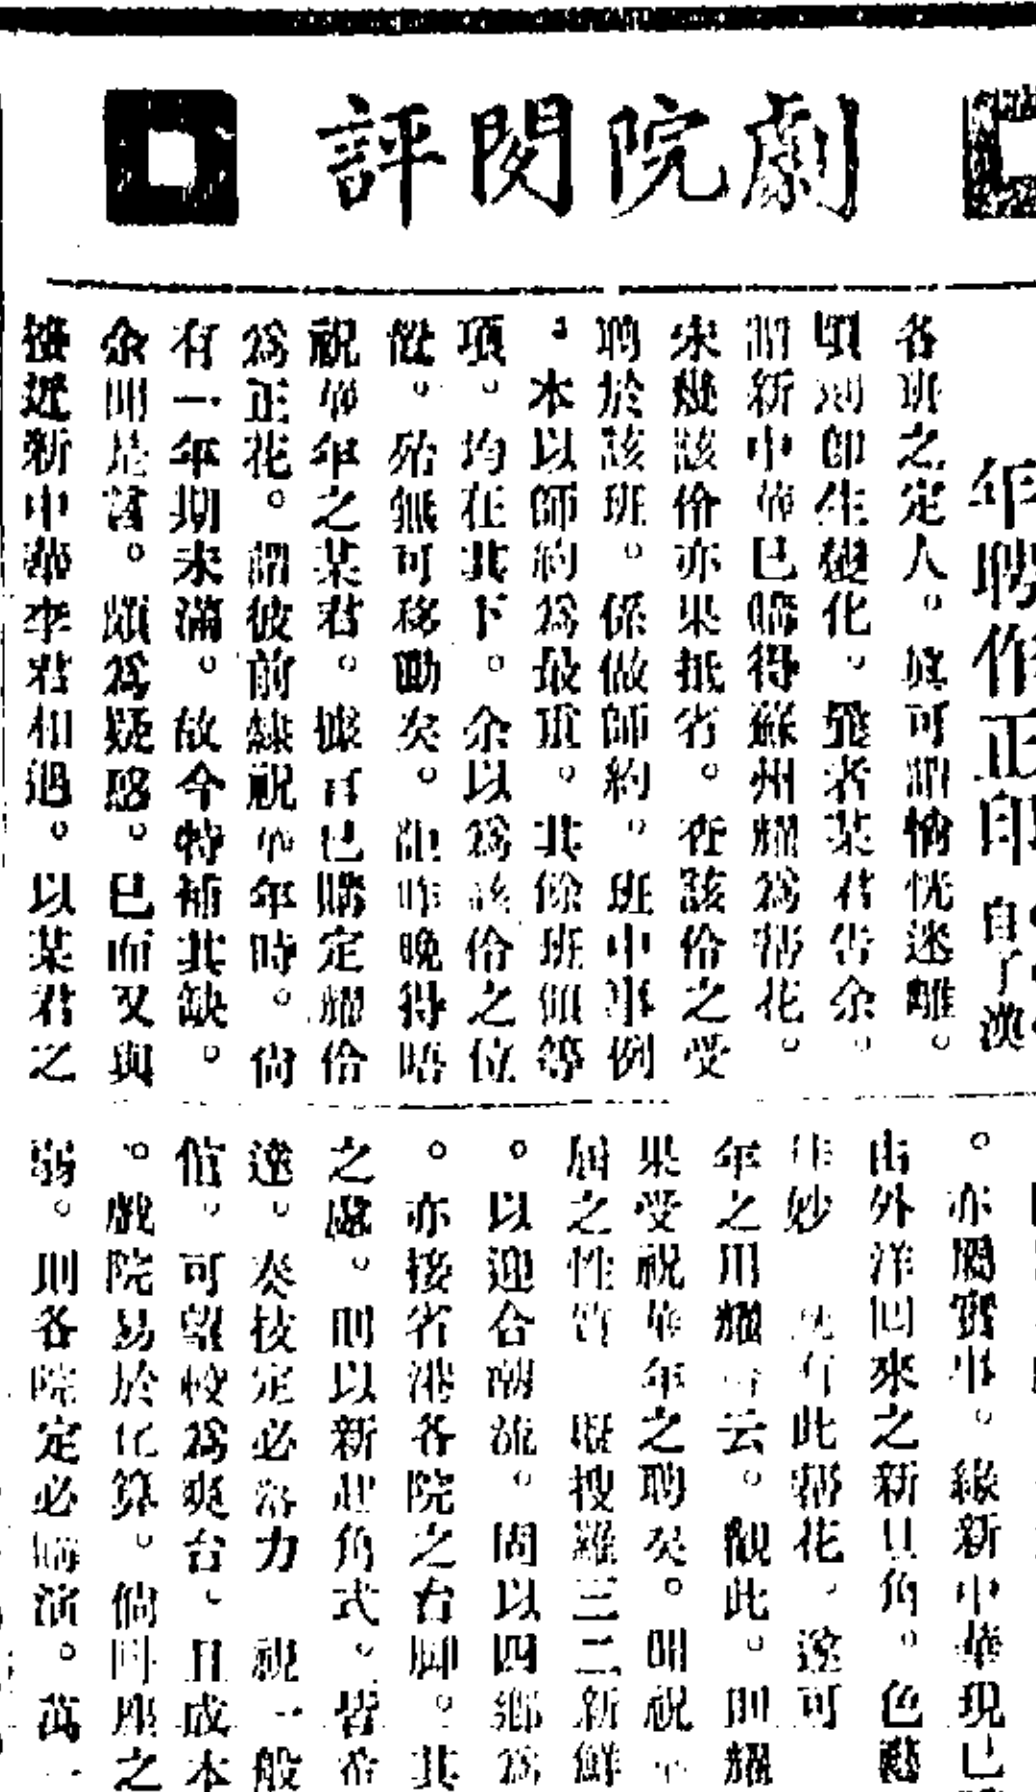 劇院閱評
年聘作正印
自了漢
各班之定人。眞可謂惝恍迷離。
頃刻卽生變化。發者某君告余。
謂新中華已購得蘇州耀爲幇花。
未幾該伶亦果抵省。查該伶之受
聘於該班。係做師約。班中事例
。本以師約爲最重。其餘班傾等
項。均在其下。余以爲該伶之位
置。殆無可移動矣。詎昨晚得晤
祝華年之某君。據言已購定耀伶
爲正花。謂彼前隸祝華年時。尙
有一年期未滿。故今特補其缺。
余聞是言。頗爲疑惑。已而又與
接近新中華李君相遇。以某君之
。亦屬實事。緣新中華現已
由外洋回來之新旦角。色藝
佳妙 旣有此幇花。遂可
年之用耀 云。觀此。則耀
果受祝華年之聘矣。聞祝
屆之性質 擬搜羅三二新鮮
。以迎合潮流。固以四鄉爲
。亦接省港各院之台脚。其
之處。則以新赴角式。皆
達。奏技定必落力 視一般
値。可望較爲爽台、且成本
。戲院易於化算。倘同座之
弱。則各院定必購演。萬一